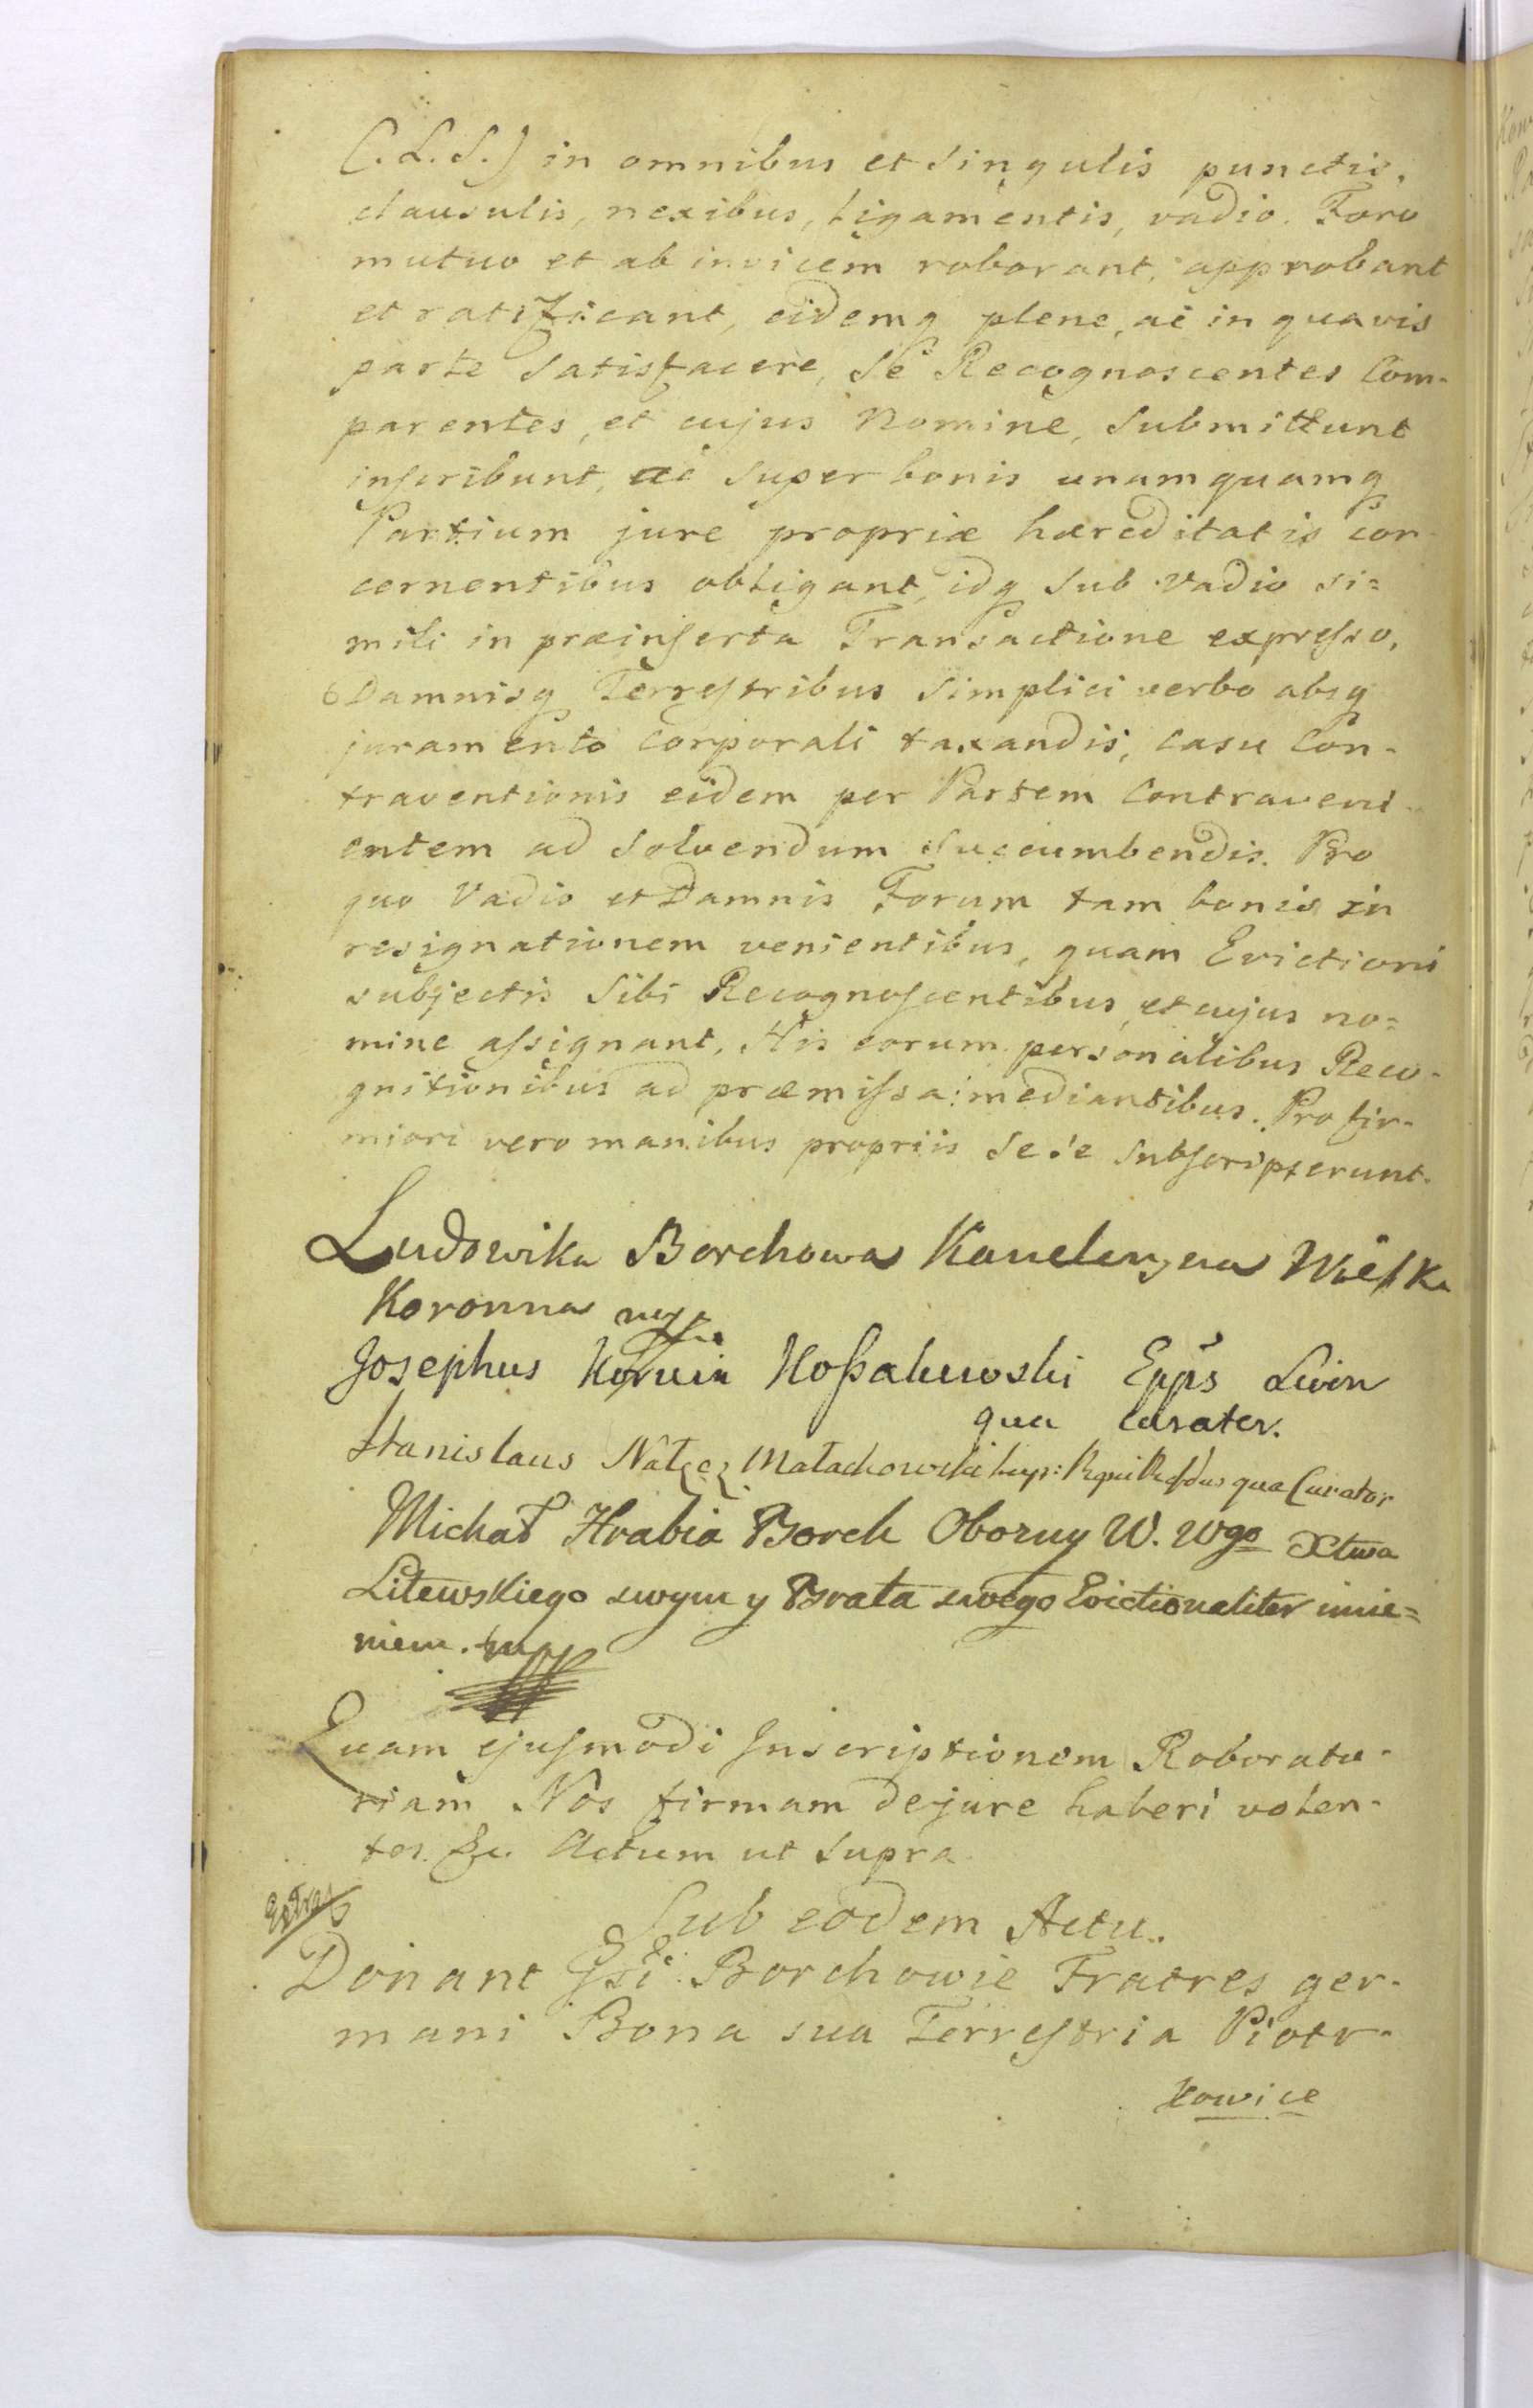 (.L.S.) in omnibus et singulis punctis,
clausulis, nexibus, ligamentis, vadio. Foro
mutuo et ab invicem roborant, approbant
et ratificant, eidemq plene, ac in quavis
parte satisfacere, se Recognoscentes Com-
parentes, et cujus Nomine, submittunt
inscribunt, ac super bonis unamquamq
Partium jure propriæ hæreditatis con-
cernentibus obligant, idq sub vadio si=
mili in præinserta Transactione expresso,
Damnisq Terrestribus simplici verbo absq
juramento corporali taxandis, casu Con-
traventionis eidem per Partem Contraveni-
entem ad solvendum succumbendis. Pro
quo Vadio et Damnis Forum tam bonis in
resignationem venientibus, quam Evictioni
subjectis sibi Recognoscentibus, et cujus no=
mine assignant. His eorum personalibus Reco-
gnitionibus ad præmissa: mediantibus. Pro fir-
miori vero manibus propriis sese subscripserunt.
Ludowika Borchowa Kanclerzyna Wielka
Koronna mpp
Josephus Korvin Kossakowski Epps Livon
qua Curator.
Stanislaus Nałęcz Małachowski Rqni qua Curator
Michał Hrabia Borch Oboźny W. Wgo Xtwa
Litewskiego swym y Brata swego Evictionaliter imie=
niem. mpp
Quam ejusmodi Inscriptionem Roborato-
riam Nos firmam de jure haberi volen-
tes. &c. Actum ut supra
Extrad
Sub eodem Actu.
Donant Gsi Borchowie Fratres ger-
mani Bona sua Terrestria Piotr-
kowice